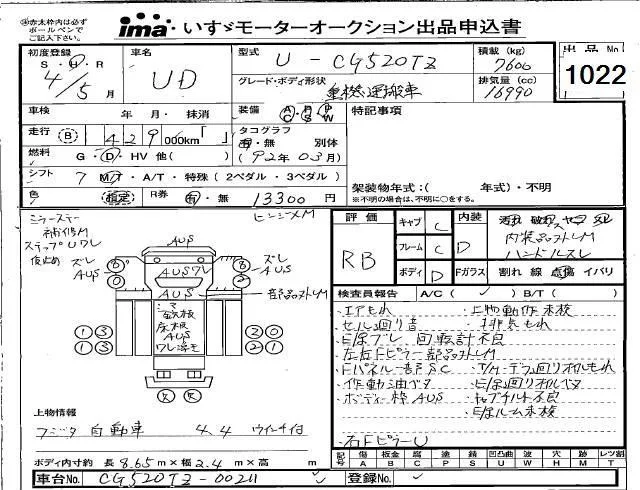 ※赤太枠内は必ず
ボールペンで
ご記入下さい。
ima いすゞモーターオークション出品申込書
出品 No.
1022
初度登録
S・H・R
4/5月
車名
UD
型式
U - CG520TZ
積載 (kg)
7600
グレード・ボディ形状
重機運搬車
排気量 (cc)
16990
車検
年 月・ 抹消
装備
A/C P/S P/W
特記事項
走行
B
429000km「 」
タコグラフ
有・無 別体
(92年03月)
燃料
G・D・HV 他( )
シフト
7 MT・A/T・特殊(2ペダル・3ペダル)
架装物年式:( 年式)・不明
※不明の場合は、不明に○をする。
色
指定
R券
有・無
13300円
ミラーステー
補修M
ステップUワレ
ヒンジメM
AUS
ズレ
AUS
ズレ
AUS
AUSワレ
AUS
部品ストレM
鉄板
床板
AUS
評価
RB
キャブ
C
フレーム
C
ボディ
D
内装
D
内装品ストレM
ハンドルスレ
Fガラス
割れ 線 点傷 イバリ
検査員報告
A/C( ) B/T( )
・エアもれ
・上物動作未検
・セル回り音
・排気もれ
・E/Gブレ、回転計不良
・左右Fピラー部品ストレM
・Fパネル一部SC
・T/M・デフ回りオイルもれ
・作動油ベタ
・E/G回りオイルベタ
・ボディー枠AUS
・キャブチルト不良
・E/Gルーム未検
・右FピラーU
上物情報
フジタ自動車 4.4 ウインチ付
ボディ内寸約 長 8.65m×幅 2.4m×高 m
記号
傷 A
板金 B
腐 C
塗 P
錆 S
凹凸曲 U
波 W
穴 H
跡 M
レツ割 T
車台No.
CG520TZ-00211
登録No.